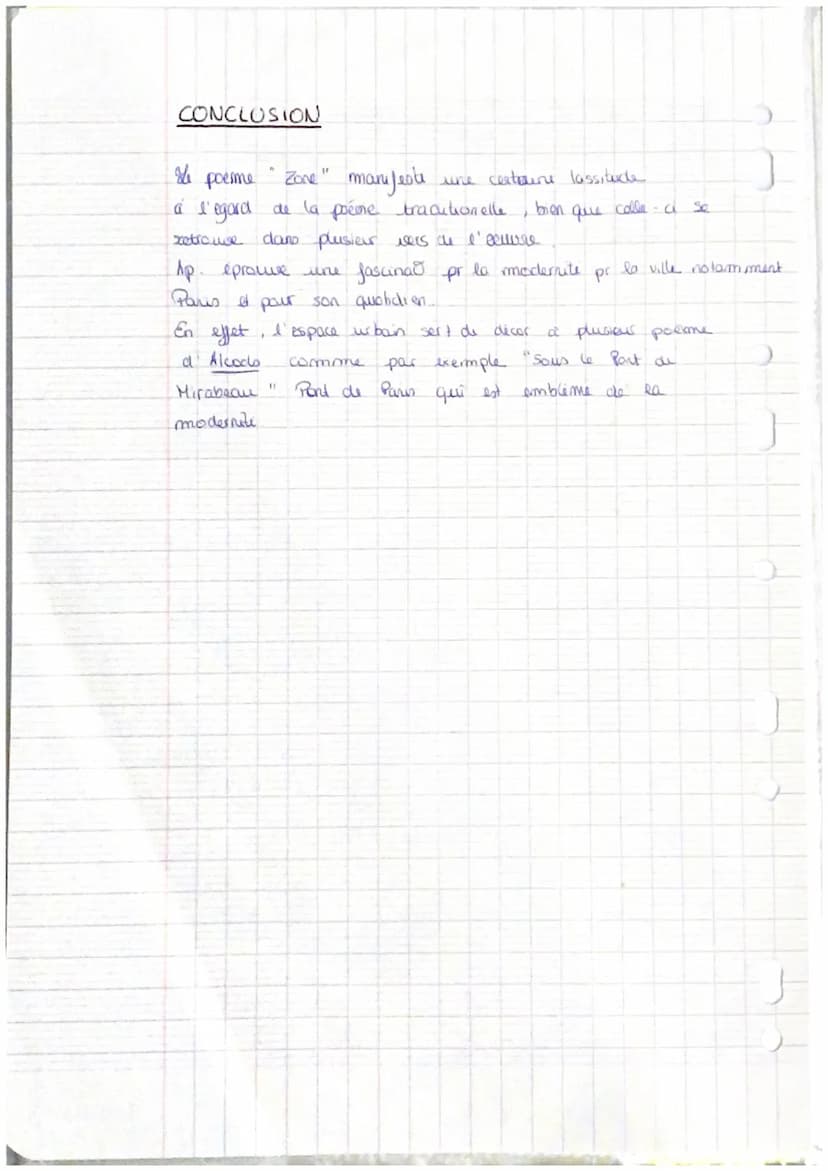 CONCLUSION
Le poeme "Zone" manifeste une certaine lassitude
à l'egard de la poème traditionelle, bien que celle-ci se
retrouve dans plusieur vers de l'œuvre.
Ap. éprouve une fascina° pr la modernite pr la ville notamment
Paris et pour son quotidien.
En effet, l'espace urbain sert de décor à plusieur poème
d'Alcools comme par exemple "Sous le Pont de
Mirabeau" Pont de Paris qui est emblème de la
modernité